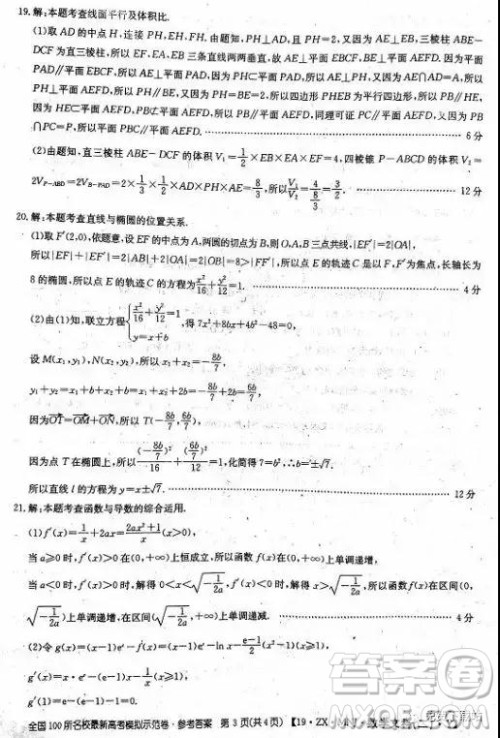 19.解:本题考查线面平行及体积比.
(1)取AD的中点H,连接PH,EH,FH.由题知,PH⊥AD,且PH=2,又因为AE⊥EB,三棱柱ABE-
DCF为直三棱柱,所以EF,EA,EB三条直线两两互相垂直,所以AE⊥平面EBCF,BE⊥平面AEFD.因为平面
PAD∥平面EBCF,所以AE⊥平面PAD,所以AE⊥PH,又因为AE∩AD=A,所以PH⊥平面AEFD,
所以PH∥BE,又因为PH=BE=2,所以四边形PHEB为平行四边形,所以PB∥HE,
因为HE⊂平面AEFD,PB⊄平面AEFD,所以PB∥平面AEFD,同理可证PC∥平面AEFD,又因为PB
∩PC=P,所以平面PBC∥平面AEFD. 6分
(2)由题知,直三棱柱ABE-DCF的体积V₁=1/2×EB×EA×EF=4,四棱锥P-ABCD的体积V₂=
2V_{P-ABD}=2V_{B-PAD}=2×1/3×1/2×AD×PH×AE=8/3,所以V₁/V₂=4/(8/3)=3/2. 12分
20.解:本题考查直线与椭圆的位置关系.
(1)取F′(2,0),依题意,设EF的中点为A,两圆的切点为B,则O,A,B三点共线,|EF′|=2|OA|,
所以|EF|+|EF′|=2|AB|+2|OA|=2|OB|=8>|FF′|=4,所以点E的轨迹C是以F,F′为焦点,长轴长为
8的椭圆,所以点E的轨迹C的方程为x²/16+y²/12=1. 4分
(2)由(1)知,联立方程{x²/16+y²/12=1, y=x+b,得7x²+8bx+4b²-48=0,
设M(x₁,y₁),N(x₂,y₂),所以x₁+x₂=-8b/7,
y₁+y₂=x₁+b+x₂+b=x₁+x₂+2b=-8b/7+2b=6b/7,
因为OT=OM+ON,所以T(-8b/7,6b/7),
因为点T在椭圆上,所以(-8b/7)²/16+(6b/7)²/12=1,化简得7=b²,∴b=±√7.
所以直线l的方程为y=x±√7. 12分
21.解:本题考查函数与导数的综合运用.
(1)f′(x)=1/x+2ax=(2ax²+1)/x(x>0),
当a≥0时,f′(x)>0在(0,+∞)上恒成立,所以函数f(x)在(0,+∞)上单调递增;
当a<0时,f′(x)>0时,解得0<x<√(-1/2a),f′(x)<0时,解得x>√(-1/2a),所以函数f(x)在(0,
√(-1/2a))上单调递增,在区间(√(-1/2a),+∞)上单调递减. 4分
(2)令g(x)=(x-1)eˣ-f(x)=(x-1)eˣ-ln x-(e-1)/2(x²-1)(x≥1),
g′(x)=eˣ+(x-1)eˣ-1/x-(e-1)x(x≥1),
g′(1)=e-(e-1)-1=0.
全国100所名校最新高考模拟示范卷·参考答案 第3页(共4页)【19·ZX